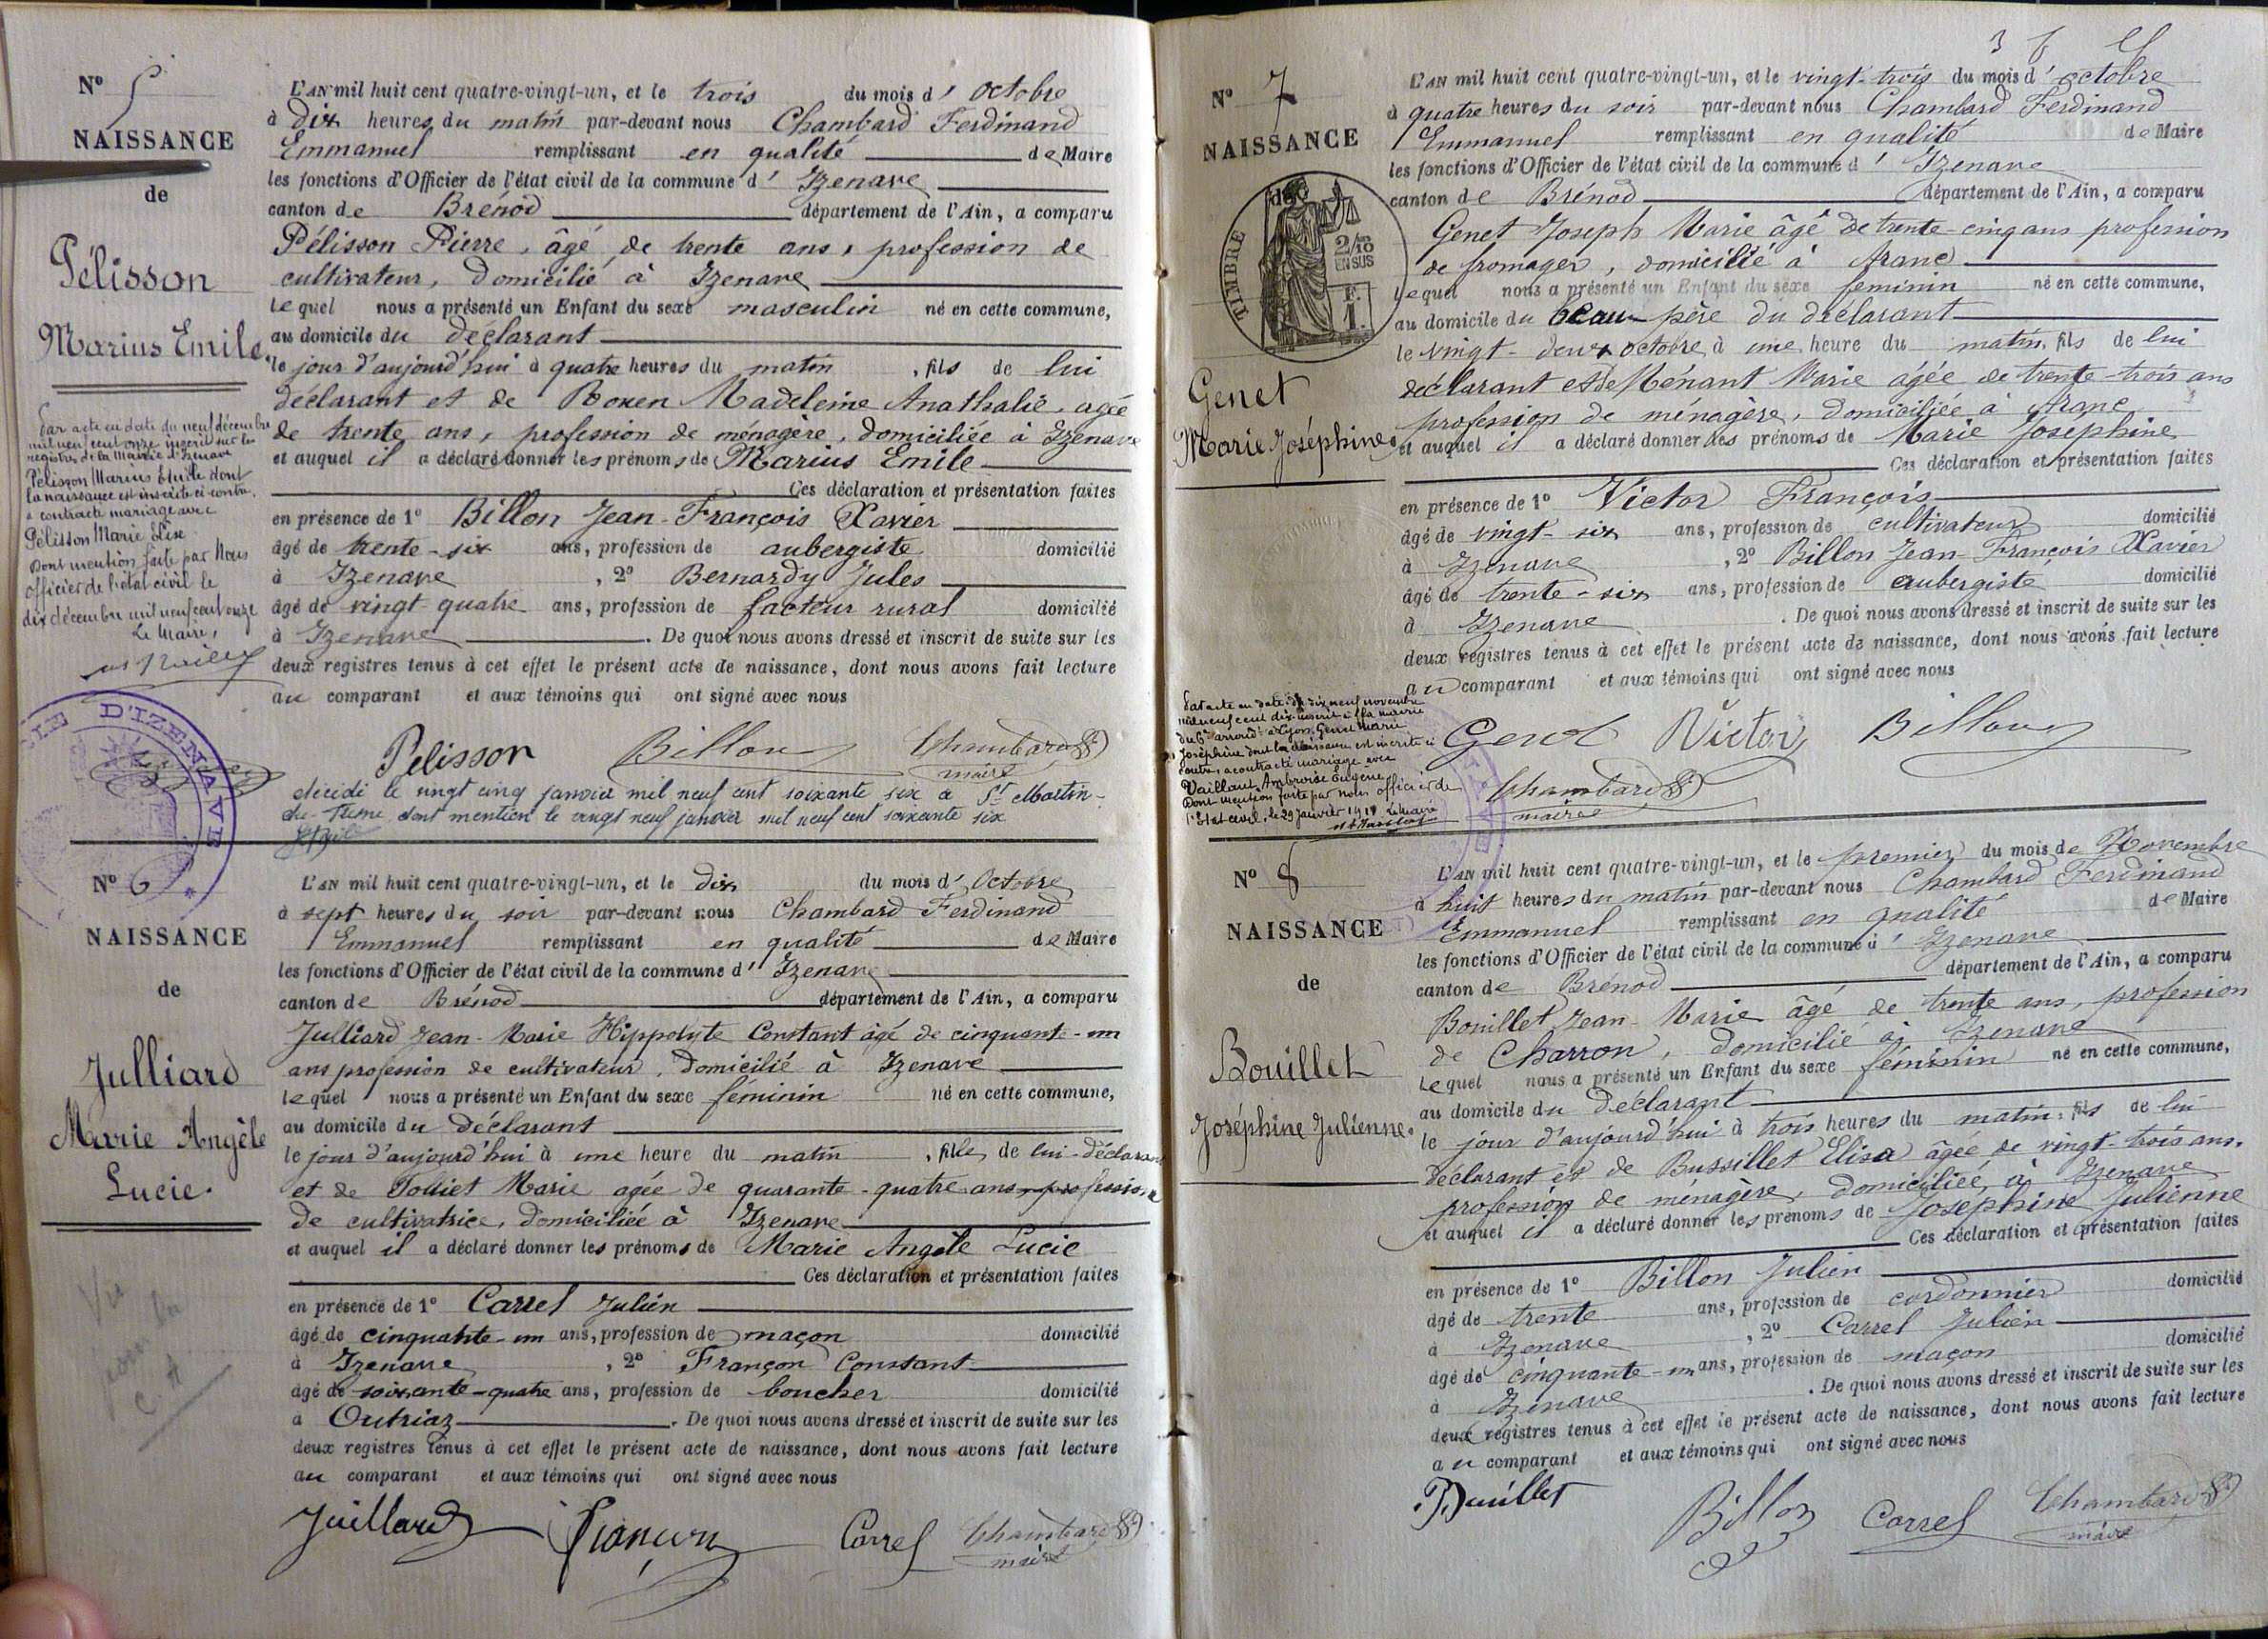 N° 5
NAISSANCE
de
Pélisson
Marius Emile.
Par acte en date du neuf décembre
mil neuf cent onze inscrit sur les
registres de la Mairie d'Izenave
Pélisson Marius Emile dont
la naissance est inscrite ci-contre,
a contracté mariage avec
Pélisson Marie Elise
Dont mention faite par Nous
officier de l'état civil le
dix décembre mil neuf cent onze
Le Maire,
MAIRIE D'IZENAVE
L'AN mil huit cent quatre-vingt-un, et le trois du mois d' Octobre
à dix heures du matin par-devant nous Chambard Ferdinand
Emmanuel remplissant en qualité de Maire
les fonctions d'Officier de l'état civil de la commune d' Izenave
canton de Brénod département de l'Ain, a comparu
Pélisson Pierre, âgé de trente ans, profession de
cultivateur, domicilié à Izenave
lequel nous a présenté un Enfant du sexe masculin né en cette commune,
au domicile du déclarant
le jour d'aujourd'hui à quatre heures du matin, fils de lui
déclarant et de Madeleine Anathalie, agée
de trente ans, profession de ménagère, domiciliée à Izenave
et auquel il a déclaré donner les prénoms de Marius Emile
Ces déclaration et présentation faites
en présence de 1° Billon Jean-François Xavier
âgé de trente-six ans, profession de aubergiste domicilié
à Izenave, 2° Bernardy Jules
âgé de vingt-quatre ans, profession de facteur rural domicilié
à Izenave. De quoi nous avons dressé et inscrit de suite sur les
deux registres tenus à cet effet le présent acte de naissance, dont nous avons fait lecture
au comparant et aux témoins qui ont signé avec nous
Pelisson Billon Chambard
maire
décédé le vingt cinq janvier mil neuf cent soixante six à St Martin-
du-Fresne dont mention le vingt neuf janvier mil neuf cent soixante six
N° 6
NAISSANCE
de
Julliard
Marie Angèle
Lucie.
Vu
L'AN mil huit cent quatre-vingt-un, et le dix du mois d' Octobre
à sept heures du soir par-devant nous Chambard Ferdinand
Emmanuel remplissant en qualité de Maire
les fonctions d'Officier de l'état civil de la commune d' Izenave
canton de Brénod département de l'Ain, a comparu
Julliard Jean-Marie Hippolyte Constant âgé de cinquante-un
ans profession de cultivateur, domicilié à Izenave
lequel nous a présenté un Enfant du sexe féminin né en cette commune,
au domicile du déclarant
le jour d'aujourd'hui à une heure du matin, fille de lui-déclarant
et de Tolliet Marie agée de quarante-quatre ans profession
de cultivatrice, domiciliée à Izenave
et auquel il a déclaré donner les prénoms de Marie Angèle Lucie
Ces déclaration et présentation faites
en présence de 1° Carrel Julien
âgé de cinquante-un ans, profession de maçon domicilié
à Izenave, 2° Françon Constant
âgé de soixante-quatre ans, profession de boucher domicilié
à Outriaz. De quoi nous avons dressé et inscrit de suite sur les
deux registres tenus à cet effet le présent acte de naissance, dont nous avons fait lecture
au comparant et aux témoins qui ont signé avec nous
Juillard Françon Carrel Chambard
maire
N° 7
NAISSANCE
de
TIMBRE
2/10
EN SUS
F.
1.
Genet
Marie Joséphine.
Par acte en date du dix neuf novembre
mil neuf cent dix inscrit à la mairie
du 6e arrondt à Lyon, Genet Marie
Joséphine dont la naissance est inscrite ci
contre, a contracté mariage avec
Vaillant Ambroise Eugène
Dont mention faite par nous officier de
l'Etat civil, le 29 Janvier 1911 Le Maire
L'AN mil huit cent quatre-vingt-un, et le vingt-trois du mois d' octobre
à quatre heures du soir par-devant nous Chambard Ferdinand
Emmanuel remplissant en qualité de Maire
les fonctions d'Officier de l'état civil de la commune d' Izenave
canton de Brénod département de l'Ain, a comparu
Genet Joseph Marie âgé de trente-cinq ans profession
de fromager, domicilié à Aranc
lequel nous a présenté un Enfant du sexe feminin né en cette commune,
au domicile du beau-père du déclarant
le vingt-deux octobre, à une heure du matin, fils de lui
déclarant et de Ménant Marie agée de trente-trois ans
profession de ménagère, domiciliée à Aranc
et auquel il a déclaré donner les prénoms de Marie Josephine
Ces déclaration et présentation faites
en présence de 1° Victor François
âgé de vingt-six ans, profession de cultivateur domicilié
à Izenave, 2° Billon Jean-François Xavier
âgé de trente-six ans, profession de aubergiste domicilié
à Izenave. De quoi nous avons dressé et inscrit de suite sur les
deux registres tenus à cet effet le présent acte de naissance, dont nous avons fait lecture
au comparant et aux témoins qui ont signé avec nous
Genet Victor Billon
Chambard
maire
N° 8
NAISSANCE
de
Bouillet
Joséphine Julienne.
L'AN mil huit cent quatre-vingt-un, et le premier du mois de Novembre
à huit heures du matin par-devant nous Chambard Ferdinand
Emmanuel remplissant en qualité de Maire
les fonctions d'Officier de l'état civil de la commune d' Izenave
canton de Brénod département de l'Ain, a comparu
Bouillet Jean-Marie âgé de trente ans, profession
de Charron, domicilié à Izenave
lequel nous a présenté un Enfant du sexe féminin né en cette commune,
au domicile du déclarant
le jour d'aujourd'hui à trois heures du matin, fils de lui
déclarant et de Bussillet Elisa âgée de vingt-trois ans.
profession de ménagère, domiciliée à Izenave
et auquel il a déclaré donner les prénoms de Joséphine Julienne
Ces déclaration et présentation faites
en présence de 1° Billon Julien
âgé de trente ans, profession de cordonnier domicilié
à Izenave, 2° Carrel Julien
âgé de cinquante-un ans, profession de maçon domicilié
à Izenave. De quoi nous avons dressé et inscrit de suite sur les
deux registres tenus à cet effet le présent acte de naissance, dont nous avons fait lecture
au comparant et aux témoins qui ont signé avec nous
Bouillet Billon Carrel Chambard
maire